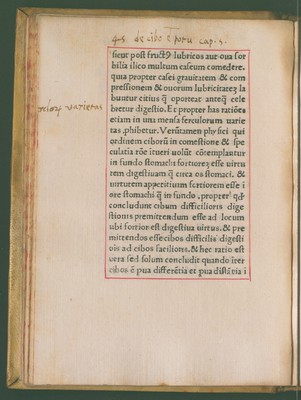 4s de cibo & potu cap. 5.
sicut post fructꝰ lubricos aut oua sor
bilia ilico multum caseum comedere.
quia propter casei grauitatem & com
pressionem & ouorum lubricitatez la
buntur citius q̃ oporteat anteq̃ cele
bretur digestio. Et propter has ratiões
etiam in una mensa ferculorum varie
tas ꝓhibetur. Verũtamen physici qui
ordinem ciborũ in comestione & spe
culatiõe ítueri uolũt cõtemplantur
in fundo stomachi fortiorez esse uirtu
tem digestiuam q̃ circa os stomaci. &
uirtutem appetitiuam fortiorem esse ĩ
ore stomachi q̃ in fundo. propter qđ
concludunt cibum difficilioris dige
stionis premittendum esse ad locum
ubi fortior est digestiua uirtus. & pre
mittendos esse cibos difficilis digesti
ois ad cibos faciliores. & hec ratio est
uera sed solum concludit quando ĩter
cibos ẽ pua differẽtia et pua distãtia ĩ
varietas